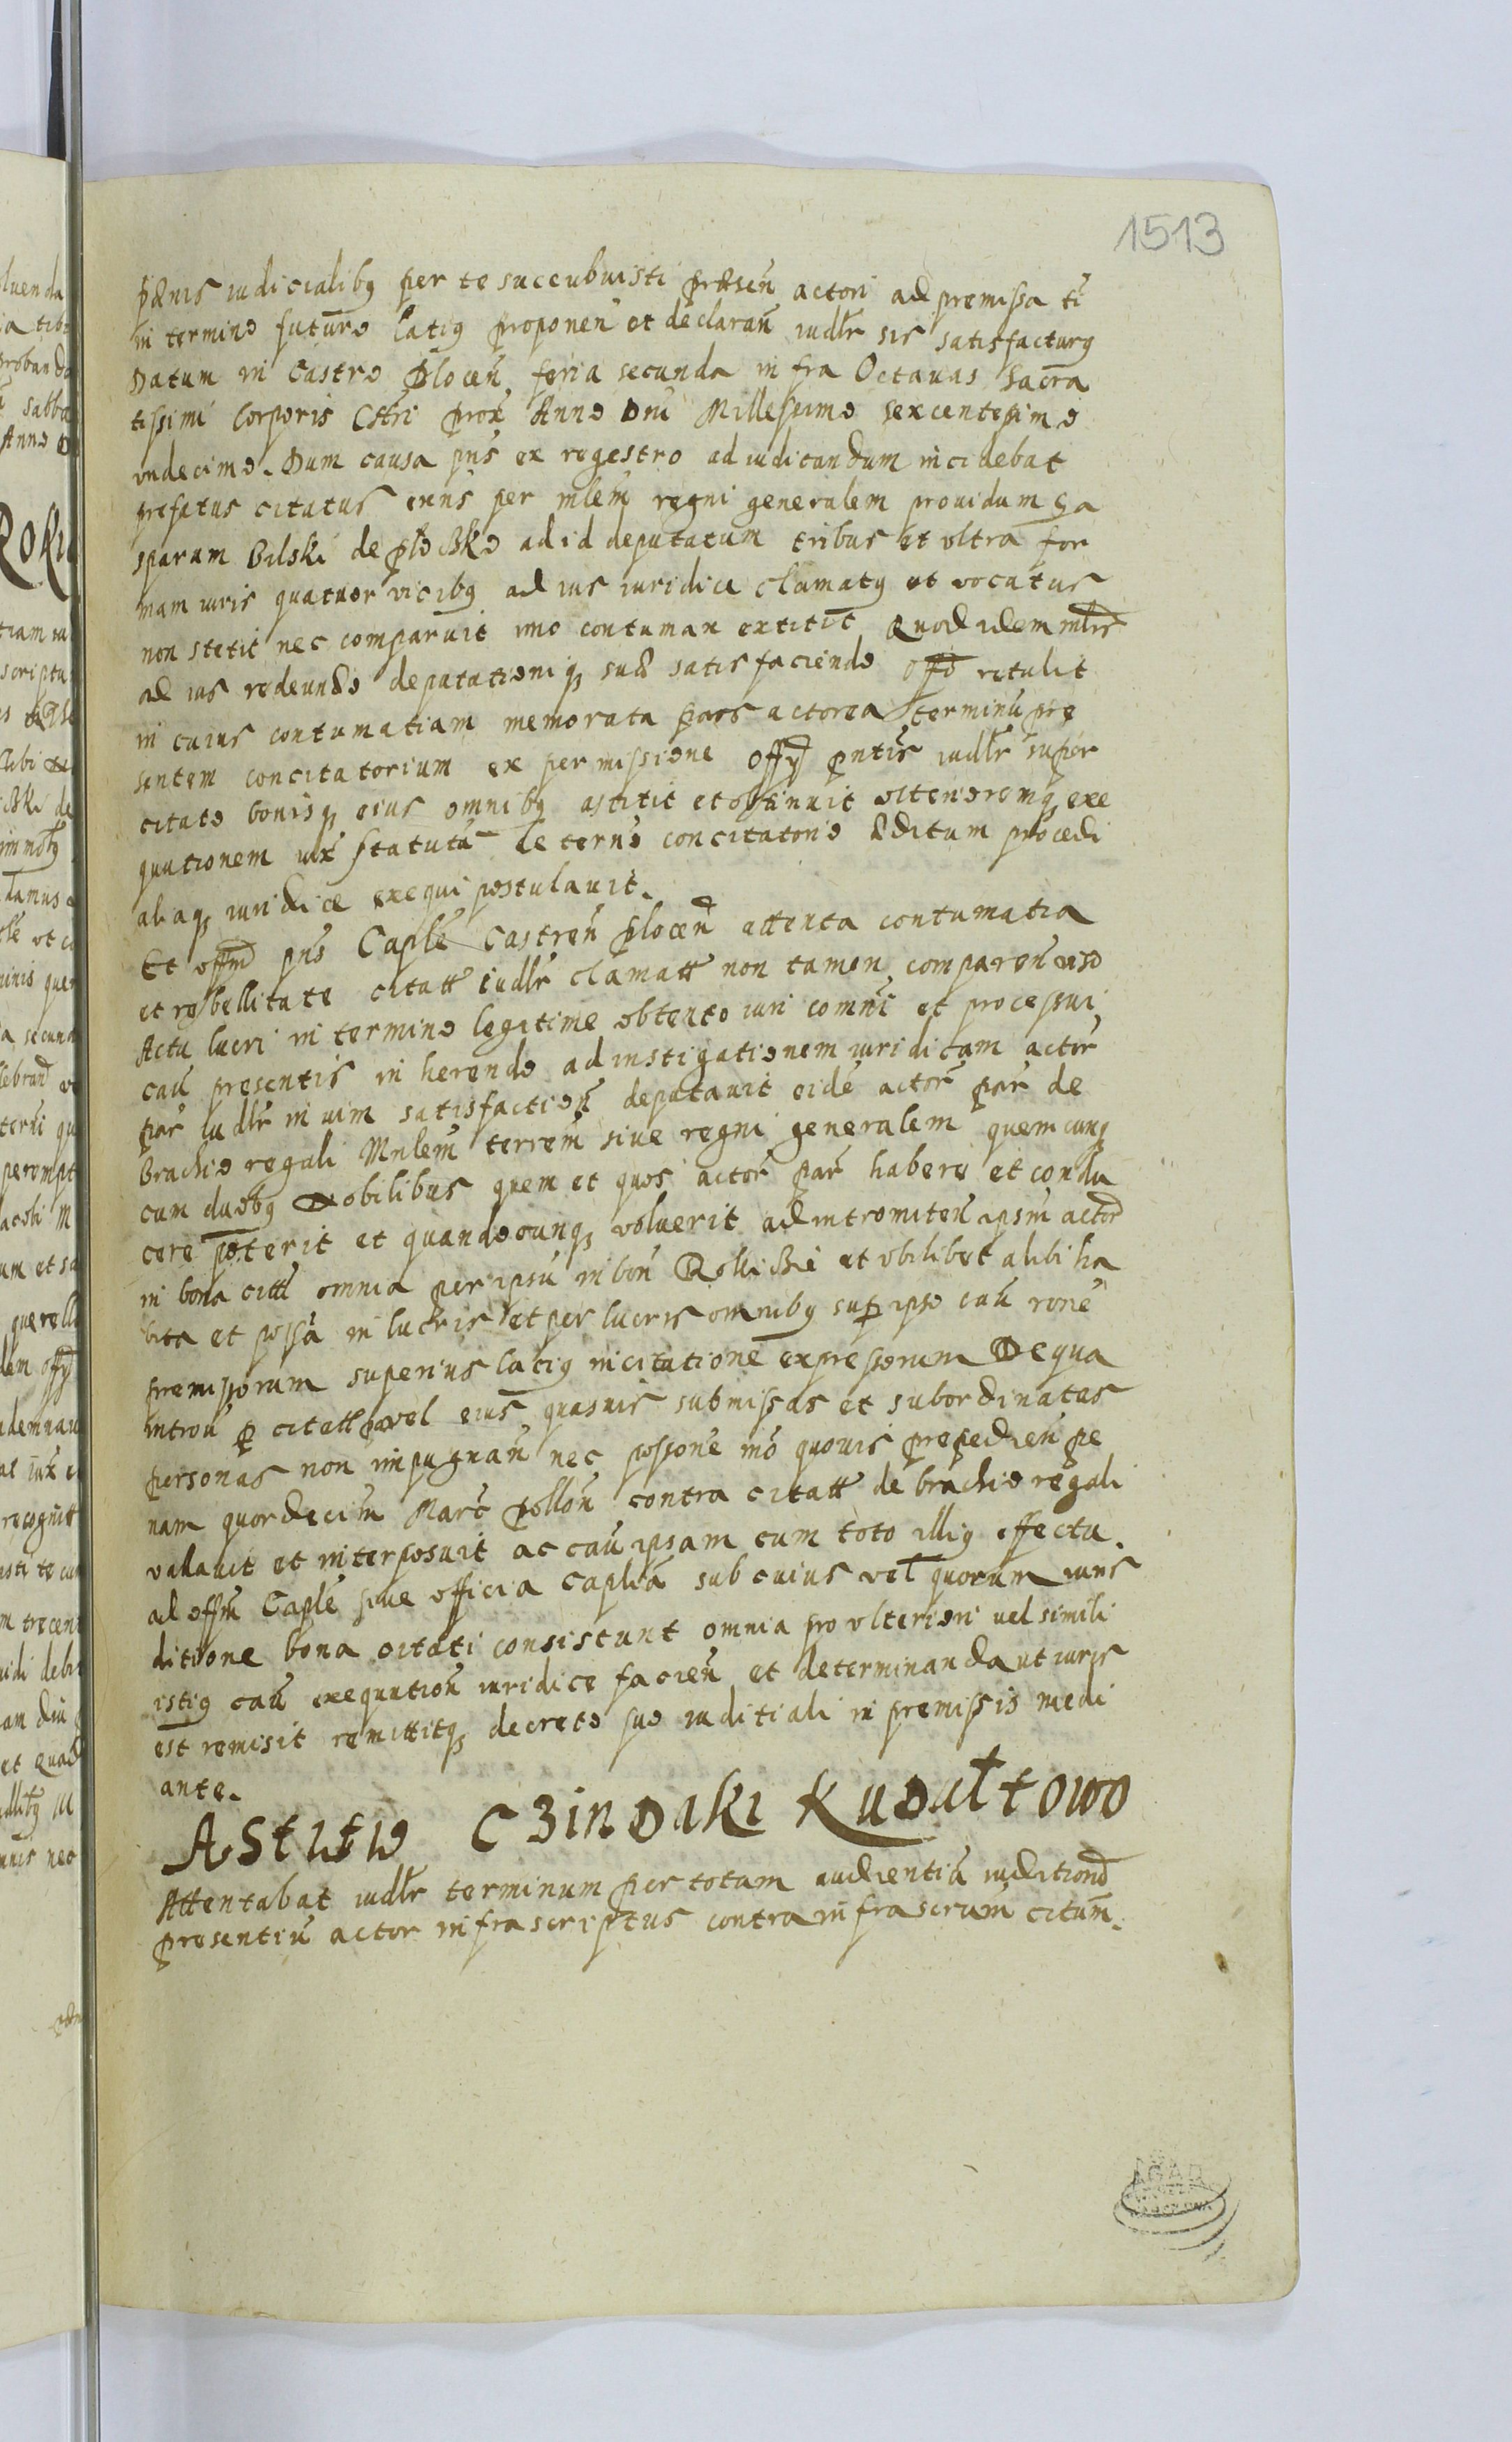 1513
pœnis iudicialibꝫ per te succubuisti præseñ actori ad premissa ti
in termino futuro latiꝫ proponeñ et declarañ iudlr sis satisfacturꝫ
Datum in Castro Ploceñ feria secunda infra Octauas Sacra
tissimi Corporis Chri prox Anno Dni Millesimo sexcentesimo
vndecimo. Dum causa pñs ex regestro ad iudicandum incidebat
prefatus citatus eius per mlem regni generalem prouidum Ga
sparum Bilski de Ploczko ad id deputatum tribus et vltra for
mam iuris quatuor vicibꝫ ad ius iuridice clamatꝫ et vocatus
non stetit nec comparuit imo contumax extitit Quod idem mlis
ad ius redeundo deputationiqꝫ suæ satisfaciendo offo retulit
in cuius contumatiam memorata pars actorea terminũ pre
sentem concitatorium ex permissione offy pntis iudlr super
citato bonisqꝫ eius omnibꝫ astitit et obtinuit vlterioremqꝫ exe
quutionem iux statutũ de terno concitatorio æditum procedi
aliaqꝫ iuridice exequi postulauit.
Et offm pñs Caple Castreñ Ploceñ attenta contumatia
et rebellitate citatt iudlr clamatt non tamen compareñ viso
Actu lucri in termino legitime obtento iuri comni et processui
cau presentis inherendo ad instigationem iuridicam actor
par iudlr in uim satisfactioñ deputauit eidẽ actor par de
Brachio regali Mnlem terrem siue regni generalem quemcunqꝫ
cum duobꝫ Nobilibus quem et quos actor par habere et condu
cere poterit et quandocunqꝫ voluerit ad intromiteñ ipsm actor
in bona citt omnia per ipsũ in boñ et vbilibet alibi ha
bita et possa in lucris et per lucris omnibꝫ sup ipso cau rone
premissorum superius latiꝫ in citatione expressorum De qua
introm p citatt vel eius quasuis submissas et subordinatas
personas non impugnañ nec possone imo quouis prepedieñ pe
nam quordecim Marc polloñ contra citatt de brachio regali
valauit et interposuit ac cau ipsam cum toto illiꝫ effectu
ad offm Caple siue officia caplia sub cuius vel quorum iuris
ditione bona citati consistunt omnia pro vlteriori uel simili
istiꝫ cau exequutioñ iuridice facieñ et determinanda ut iuris
est remisit remittitqꝫ decreto suo iuditiali in premissis medi
ante.
Astitio Czindaki Kudałtowo
Attentabat iudlr terminum per totam audientiã iuditiorũ
presentiũ actor infrascriptus contra infrascrum citum.
AGAD